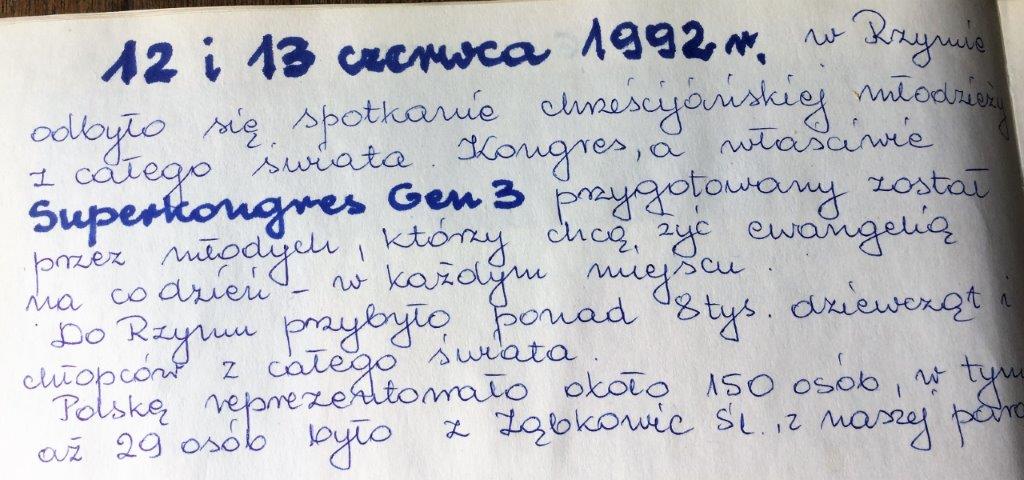 12 i 13 czerwca 1992 r. w Rzymie
odbyło się spotkanie chrześcijańskiej młodzieży
z całego świata. Kongres, a właściwie
Superkongres Gen 3 przygotowany został
przez młodych, którzy chcą żyć ewangelią
na co dzień - w każdym miejscu.
Do Rzymu przybyło ponad 8 tys. dziewcząt i
chłopców z całego świata.
Polskę reprezentowało około 150 osób, w tym
aż 29 osób było z Ząbkowic Śl., z naszej